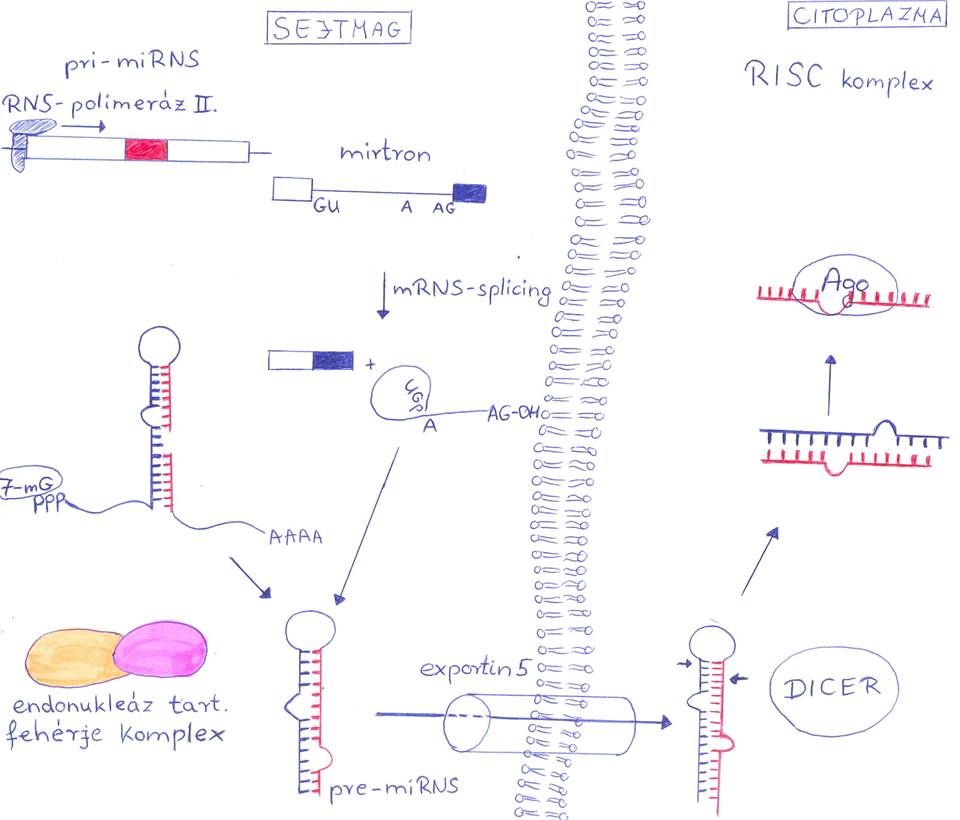 SEJTMAG
CITOPLAZMA
pri-miRNS
RNS-polimeráz II.
RISC komplex
mirtron
GU A AG
mRNS-splicing
Ago
+
UG
A
AG-OH
7-mG
PPP
AAAA
endonukleáz tart.
fehérje komplex
exportin 5
DICER
pre-miRNS